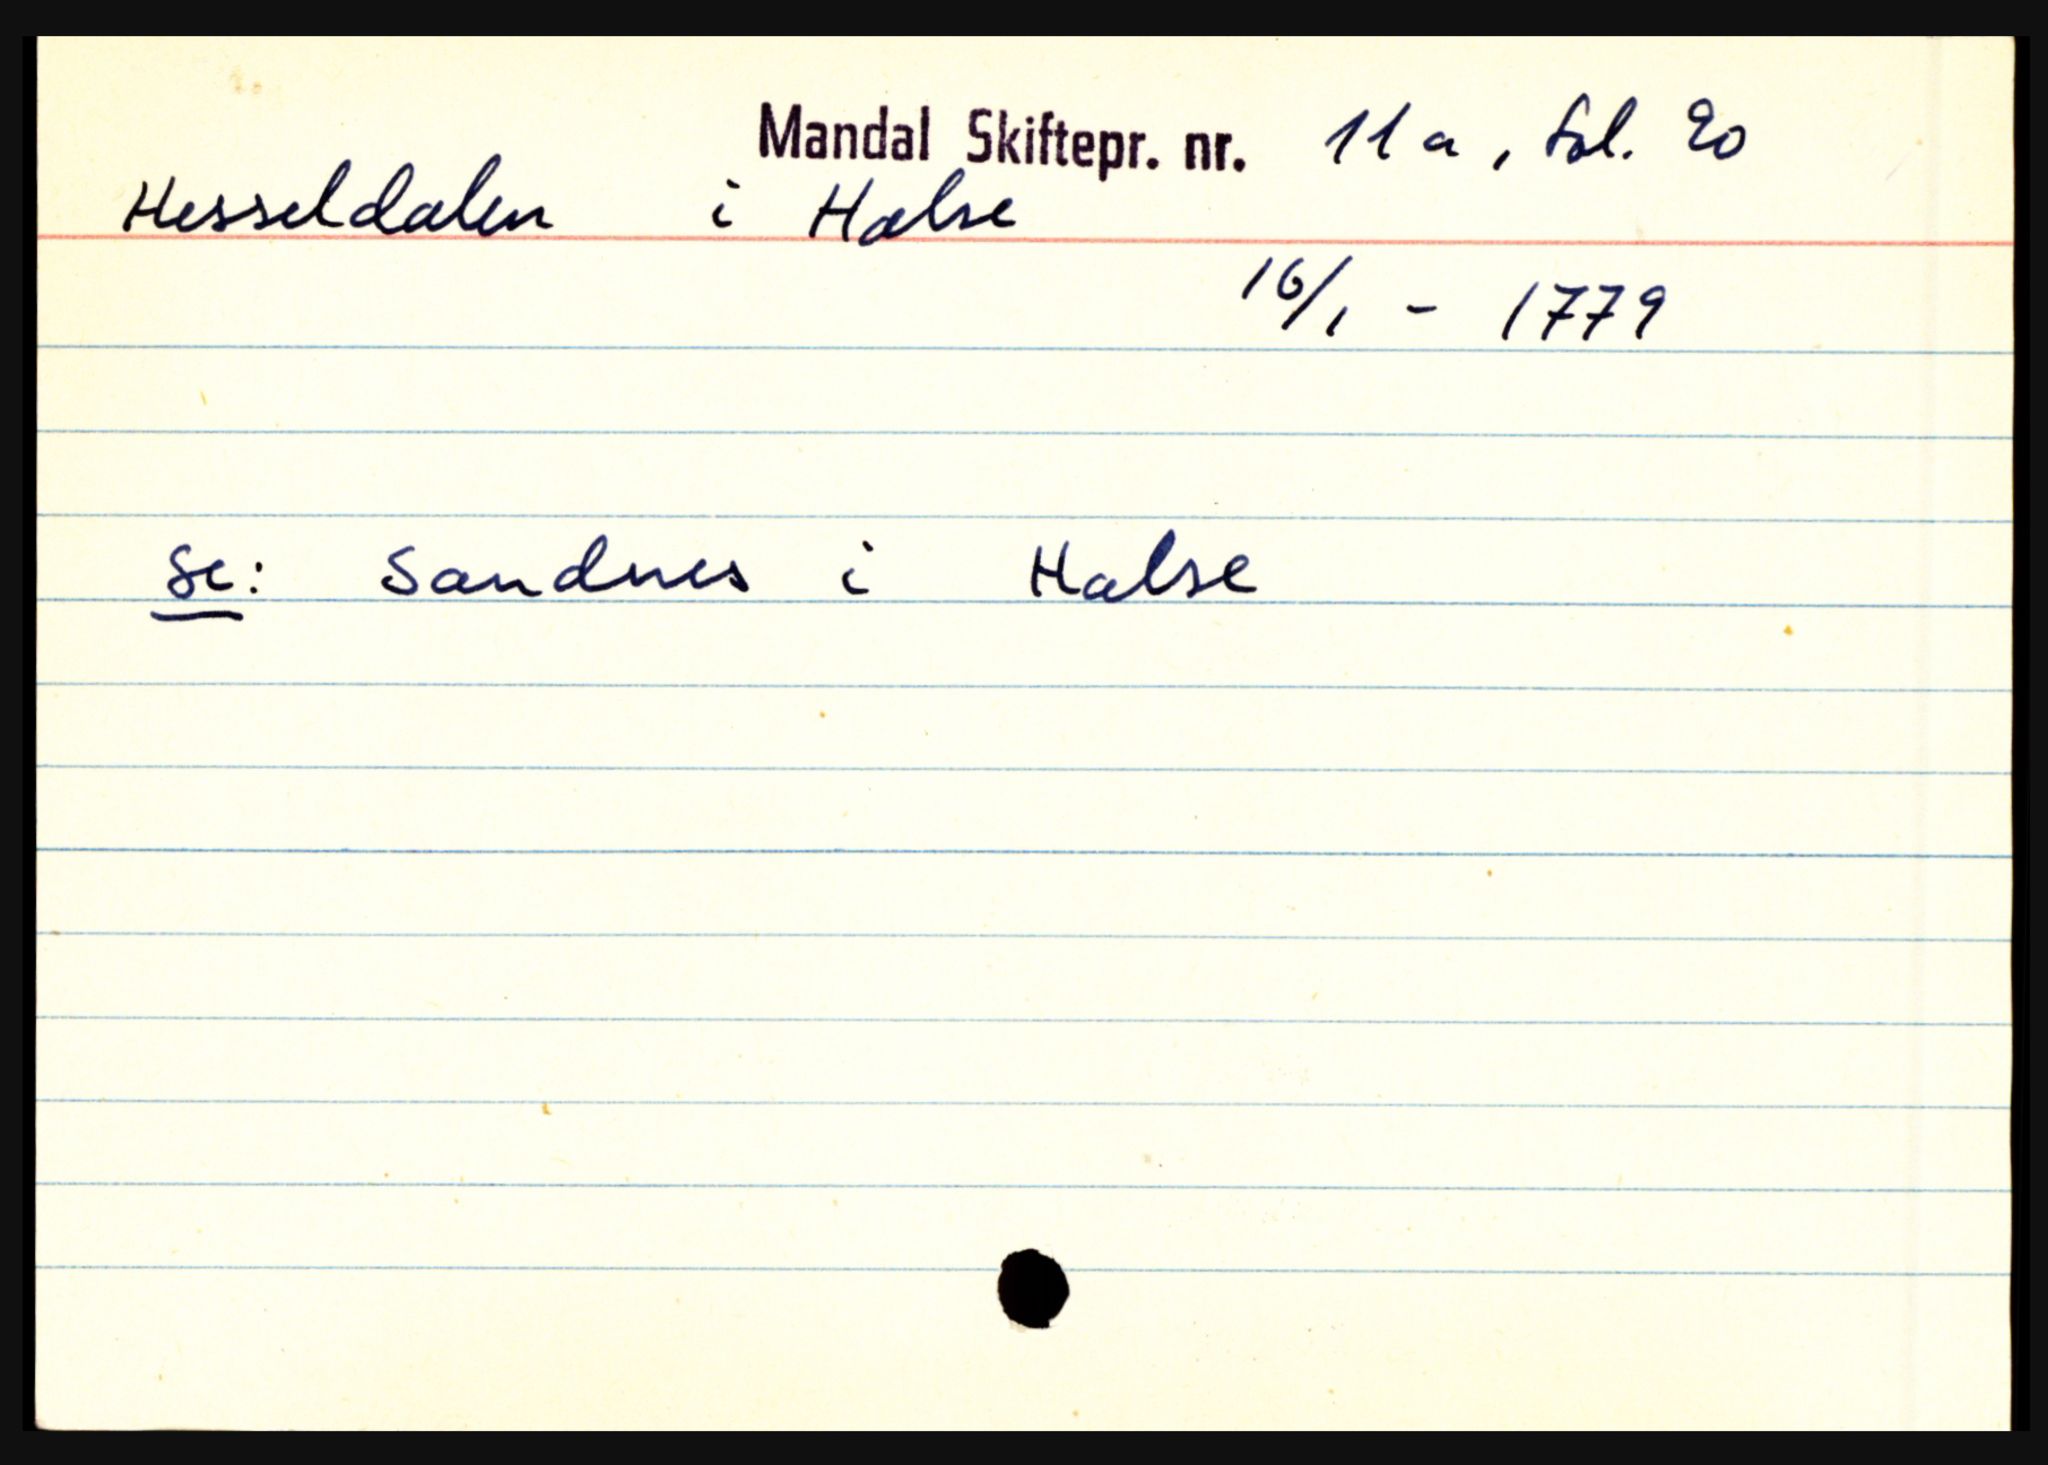 Mandal Skiftepr. nr. 11a, fol. 20
Hesseldalen i Halse
16/1 - 1779
se: Sandnes i Halse